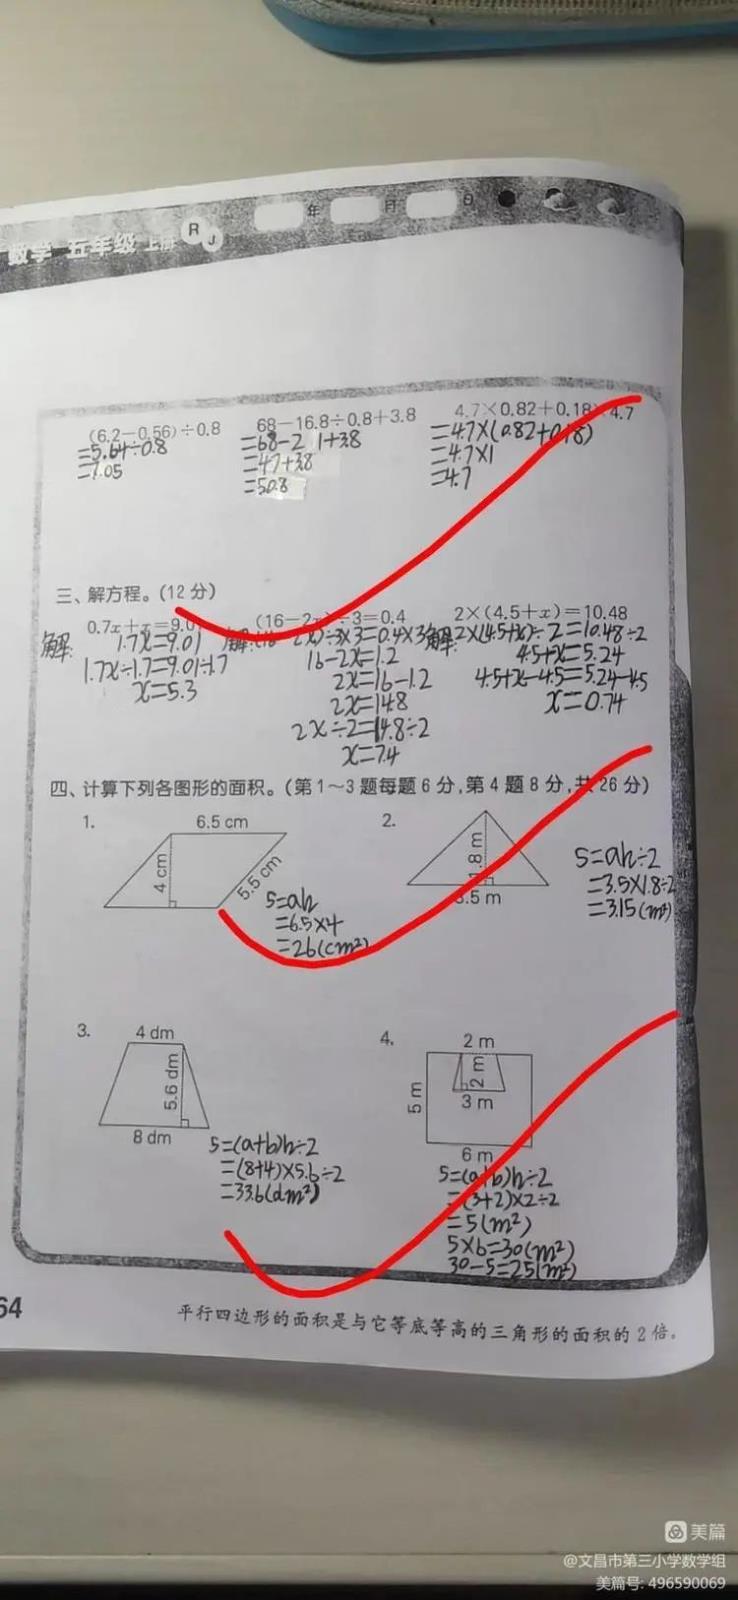 数学 五年级 上册 RJ
年 月 日
(6.2-0.56)÷0.8
=5.64÷0.8
=7.05
68-16.8÷0.8+3.8
=68-21+3.8
=47+3.8
=50.8
4.7×0.82+0.18×4.7
=4.7×(0.82+0.18)
=4.7×1
=4.7
三、解方程。(12分)
0.7x+x=9.01
解: 1.7x=9.01
1.7x÷1.7=9.01÷1.7
x=5.3
(16-2x)÷3=0.4
解:(16-2x)÷3×3=0.4×3
16-2x=1.2
2x=16-1.2
2x=14.8
2x÷2=14.8÷2
x=7.4
2×(4.5+x)=10.48
解:2×(4.5+x)÷2=10.48÷2
4.5+x=5.24
4.5+x-4.5=5.24-4.5
x=0.74
四、计算下列各图形的面积。(第1~3题每题6分,第4题8分,共26分)
1.
6.5 cm
4 cm
5.5 cm
S=ah
=6.5×4
=26(cm²)
2.
1.8 m
3.5 m
S=ah÷2
=3.5×1.8÷2
=3.15(m²)
3.
4 dm
5.6 dm
8 dm
S=(a+b)h÷2
=(8+4)×5.6÷2
=33.6(dm²)
4.
2 m
5 m
2 m
3 m
6 m
S=(a+b)h÷2
=(3+2)×2÷2
=5(m²)
5×6=30(m²)
30-5=25(m²)
64
平行四边形的面积是与它等底等高的三角形的面积的2倍。
美篇
@文昌市第三小学数学组
美篇号: 496590069